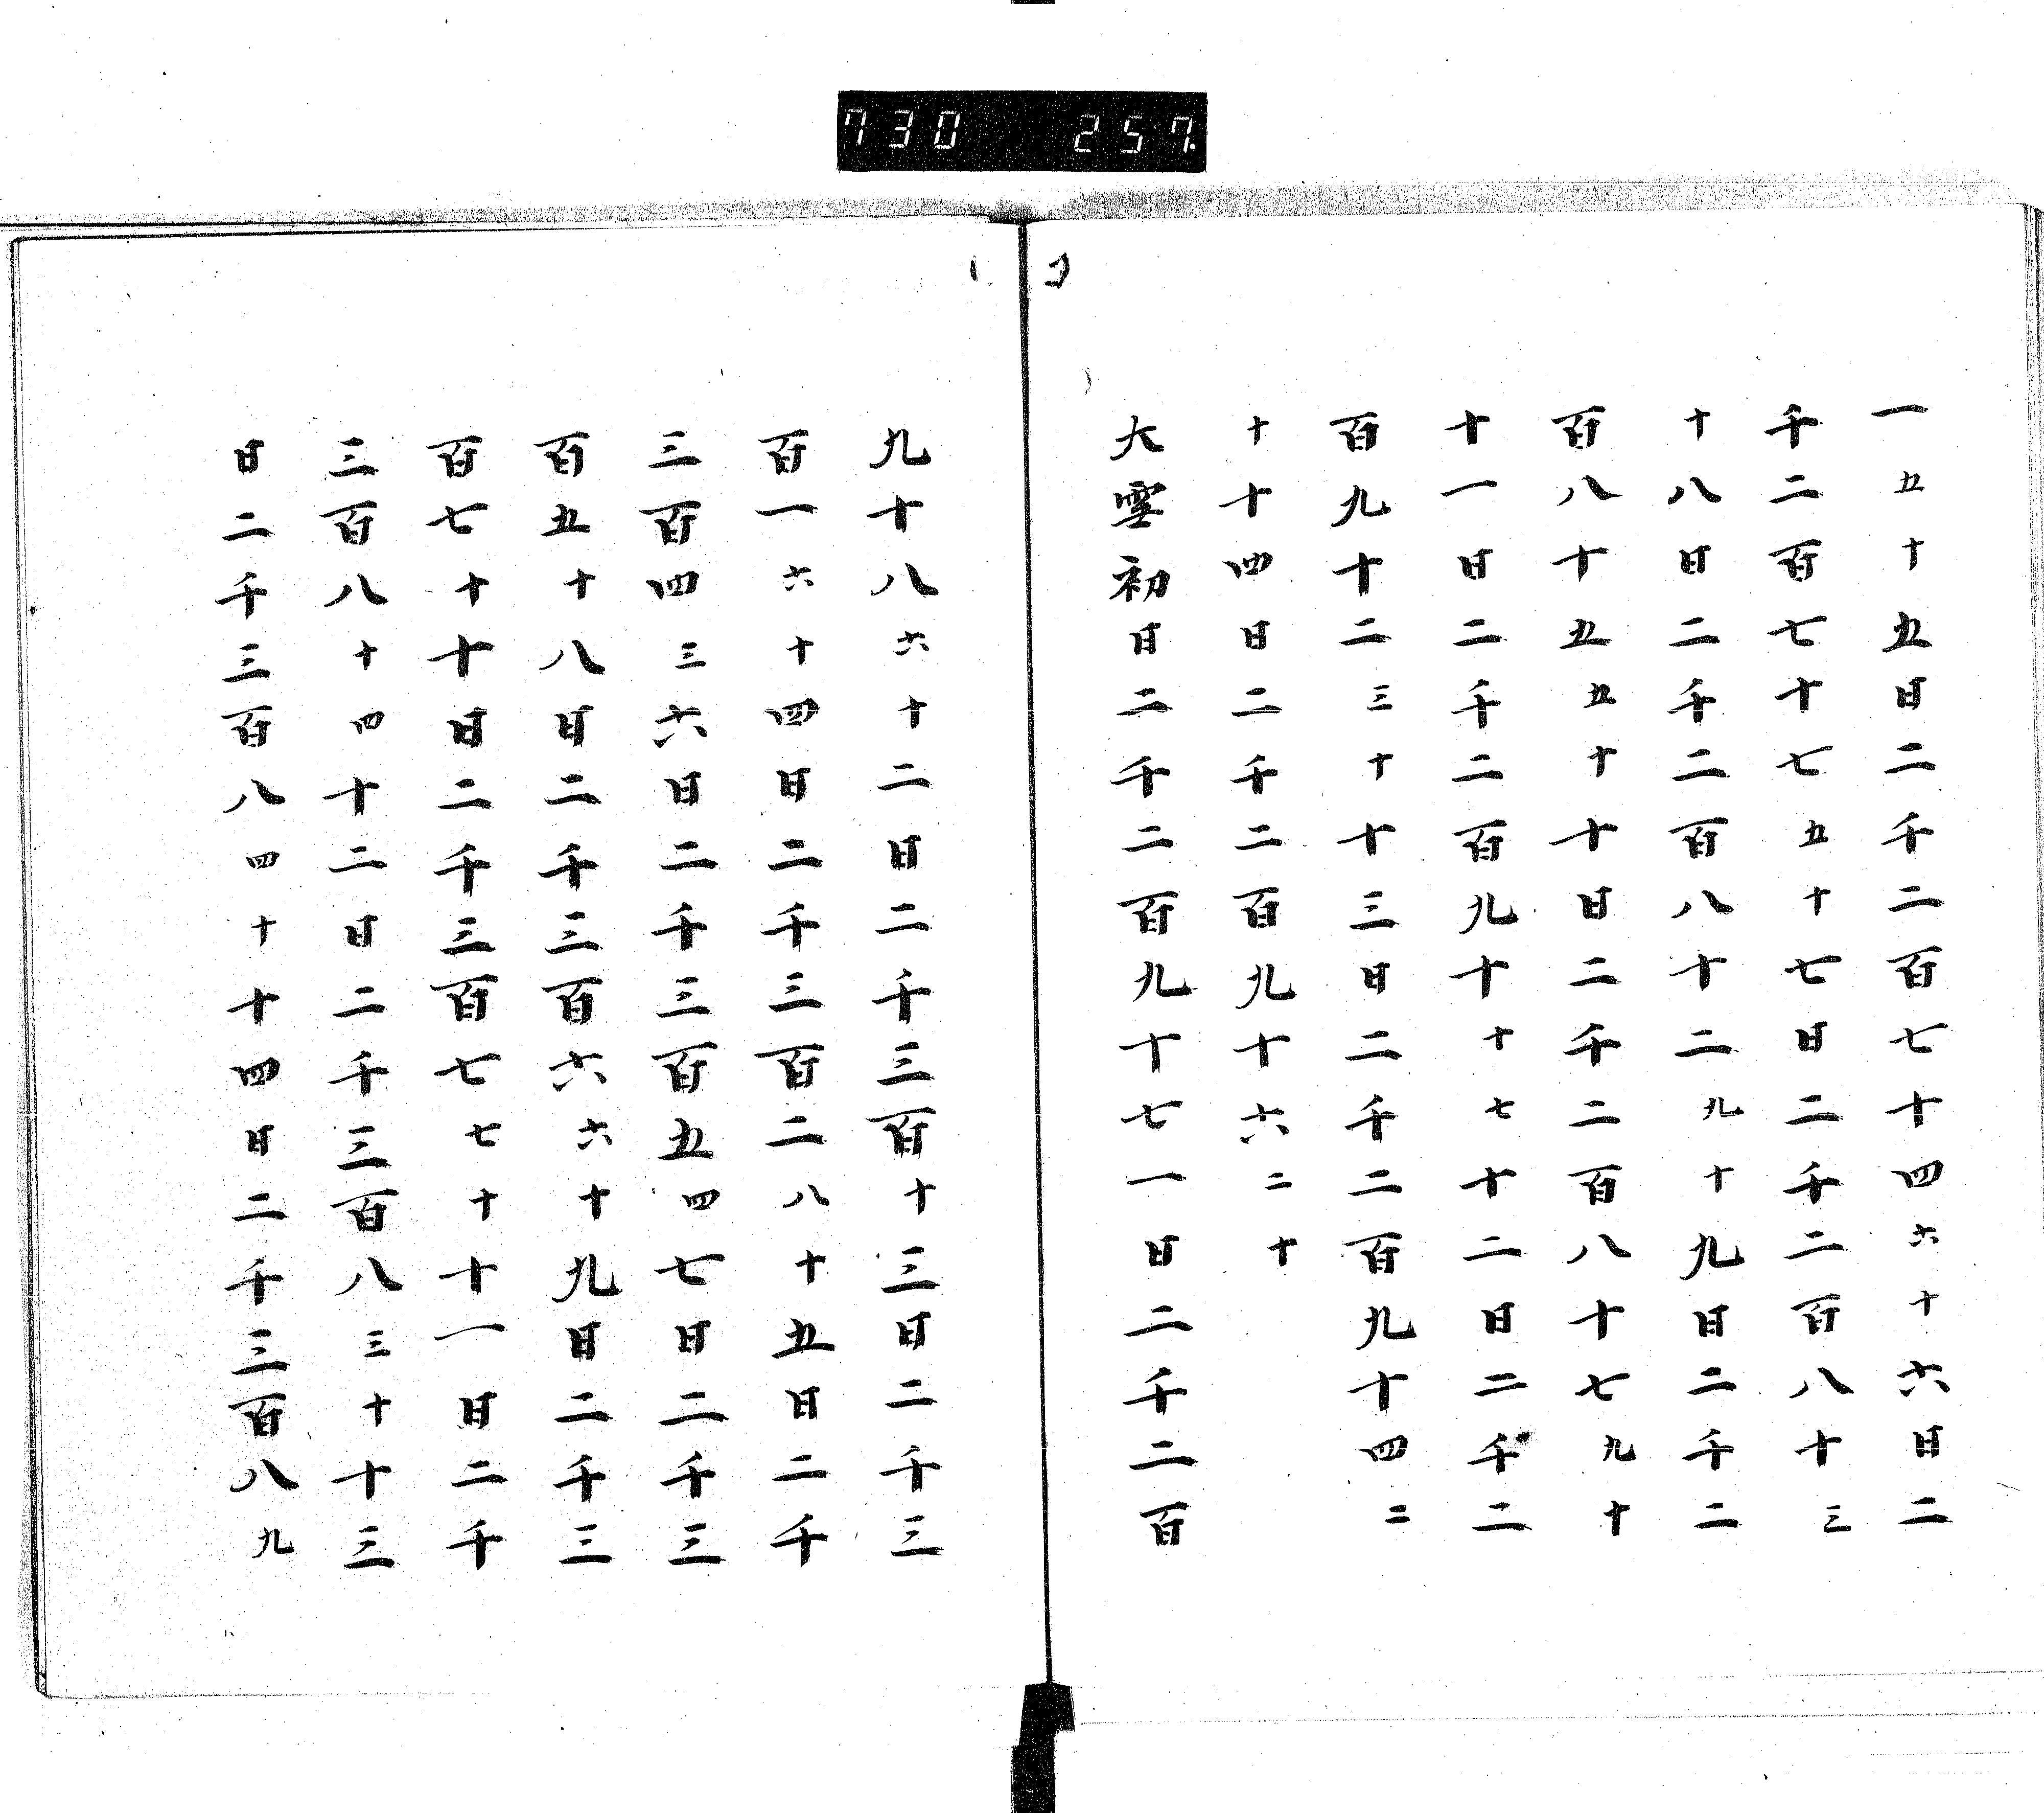 730 257.
一五十五日二千二百七十四六十六日二
千二百七十七五十七日二千二百八十三
十八日二千二百八十二九十九日二千二
百八十五五十十日二千二百八十七九十
十一日二千二百九十十七十二日二千二
百九十二三十十三日二千二百九十四二
十十四日二千二百九十六二十
大雪初日二千二百九十七一日二千二百
九十八六十二日二千三百十三日二千三
百一六十四日二千三百二八十五日二千
三百四三六日二千三百五四七日二千三
百五十八日二千三百六六十九日二千三
百七十十日二千三百七七十十一日二千
三百八十四十二日二千三百八三十十三
日二千三百八四十十四日二千三百八九